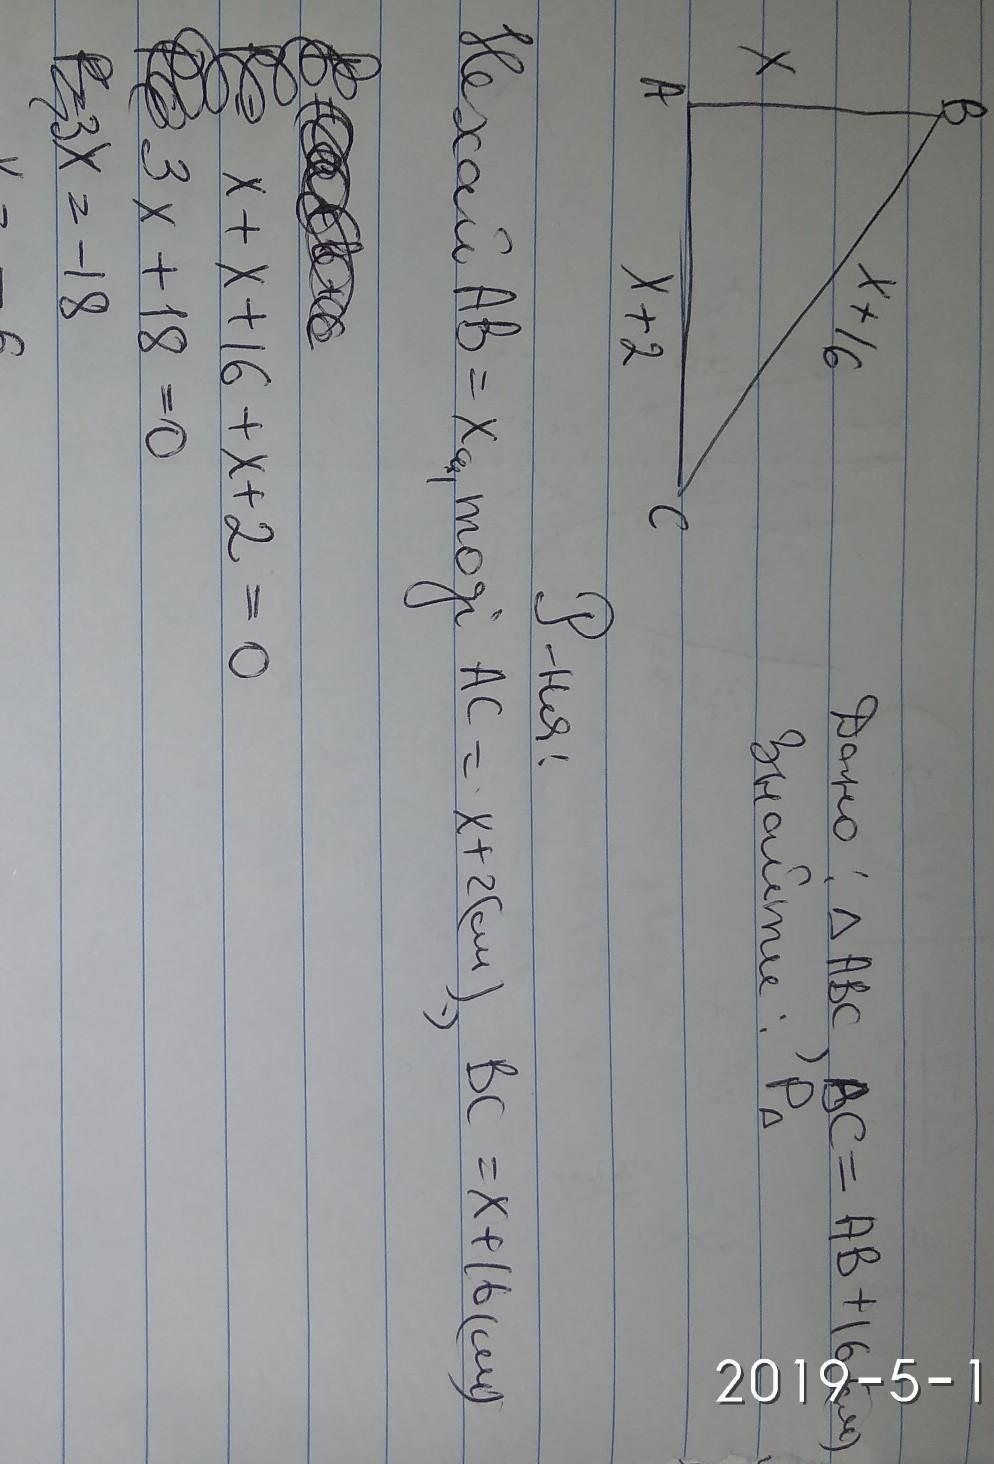 B
X
X+16
A
X+2
C
Дано: △ ABC, BC = AB+16(см)
Знайти: P△
Р-ня:
Нехай AB = x, тоді AC = x+2(см), BC = x+16(см)
x + x+16 + x+2 = 0
3x+18=0
3x = -18
x = -6
2019-5-1